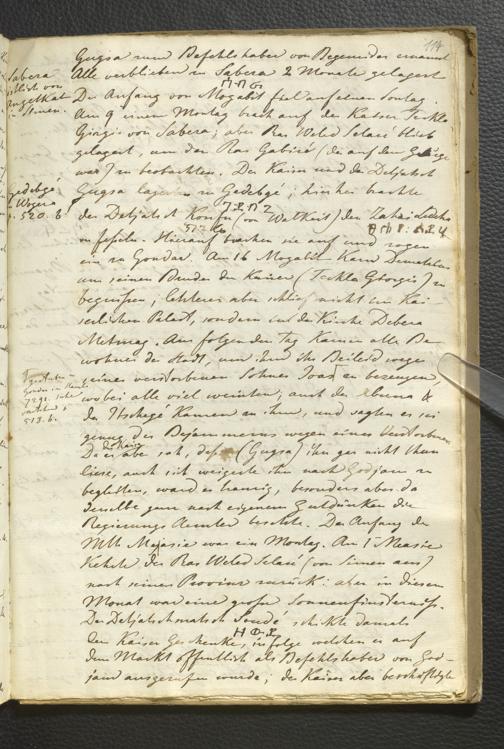 114
Gugsa zum Befehlshaber von Begemider ernannt
Alle verblieben in Sabera 2 Monate gelagert
Der Anfang von Mogabit fiel auf einen Sontag.
Am 9 einem Montag brach auf der Kaiser Teckla
Giorgis von Sabera; aber Ras Weled Selasé blieb
gelagert, um den Ras Gabrié (der auf dem Gebirge
war) zu beobachten. Der Kaiser und der Detjatsch
Gugsa lagerten in Gedebgé; hierhin brachte
der Detjatsch Konfu (von Walkait) den
Hierauf brachen sie auf und zogen
ein zu Gondar. Am 16 Mogabit kam Demetrius
um seinen Bruder den Kaiser (Teckla Giorgis) zu
begrüssen; letzterer aber schlief nicht im Kai
serlichen Palast, sondern in der Kirche Debera
Am folgenden Tag kamen alle Be
wohner der Stadt, um ihm ihr Beileid wegen
seines verstorbenen Sohnes Joas zu bezeugen,
wobei alle viel weinten; auch der Abuna &
der Itschegé kamen zu ihm, und sagten es sei
genug des Bejammerns wegen eines Verstorbenen
Da er aber sah, dass (Gugsa) ihn gar nicht thun
liesse, auch sich weigerte ihn nach Godjam zu
begleiten, ward er traurig, besonders aber da
derselbe ganz nach eigenem Gutdünken die
Regierungs Aemter besetzte. Der Anfang des
Mts Meyasie war ein Montag. Am 1 Measie
kehrte der Ras Weled Selasé (von Simen aus)
nach seiner Provinz zurück: aber in diesem
Monat war eine grosse Sonnenfinsterniss.
Der Detjatschmatsch Seude schickte damals
dem Kaiser Geschenke, in folge welchen er auf
dem Markt öffentlich als Befehlshaber von God-
jam ausgerufen wurde; der Kaiser aber beschäftigte
Sabera
Simen.
Gedebgé,
Wogera
p. 520. b.
513. b.